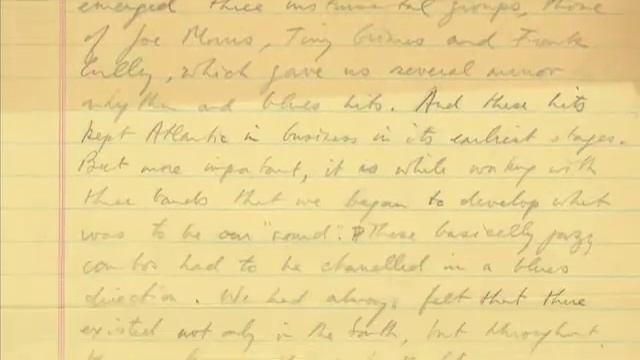 emerged three instrumental groups, those
of Joe Morris, Tiny Grimes and Frank
Cully, which gave us several minor
rhythm and blues hits. And these hits
kept Atlantic in business in its earliest stages.
But more important, it is while working with
these bands that we began to develop what
was to be our "sound". These basically jazz
combos had to be chanelled in a blues
direction. We had always felt that there
existed not only in the South, but throughout